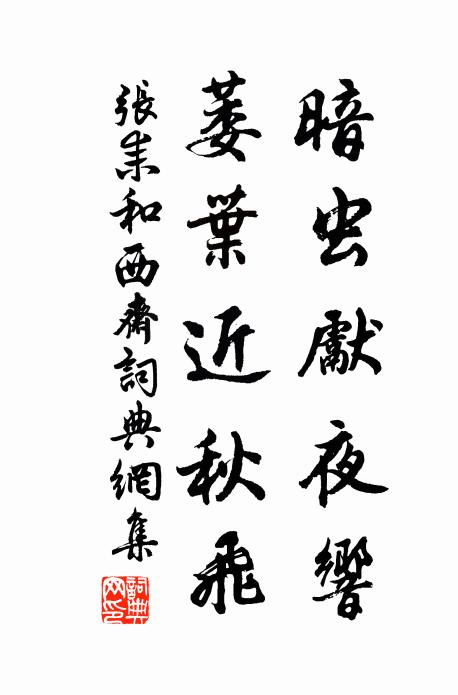 暗虫獻夜響
萋葉近秋飛
張耒和西齋詞典網集
詞典
网印